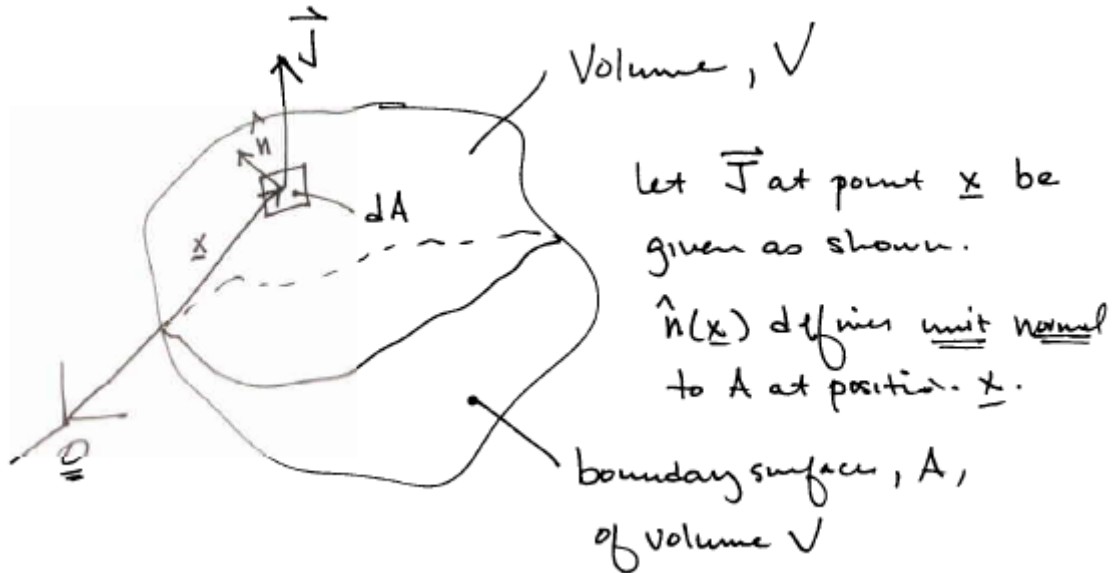 J⃗
Volume, V
n̂
let J⃗ at point x be
dA
given as shown.
x
n̂(x) defines unit normal
to A at position x.
O
boundary surface, A,
of volume V